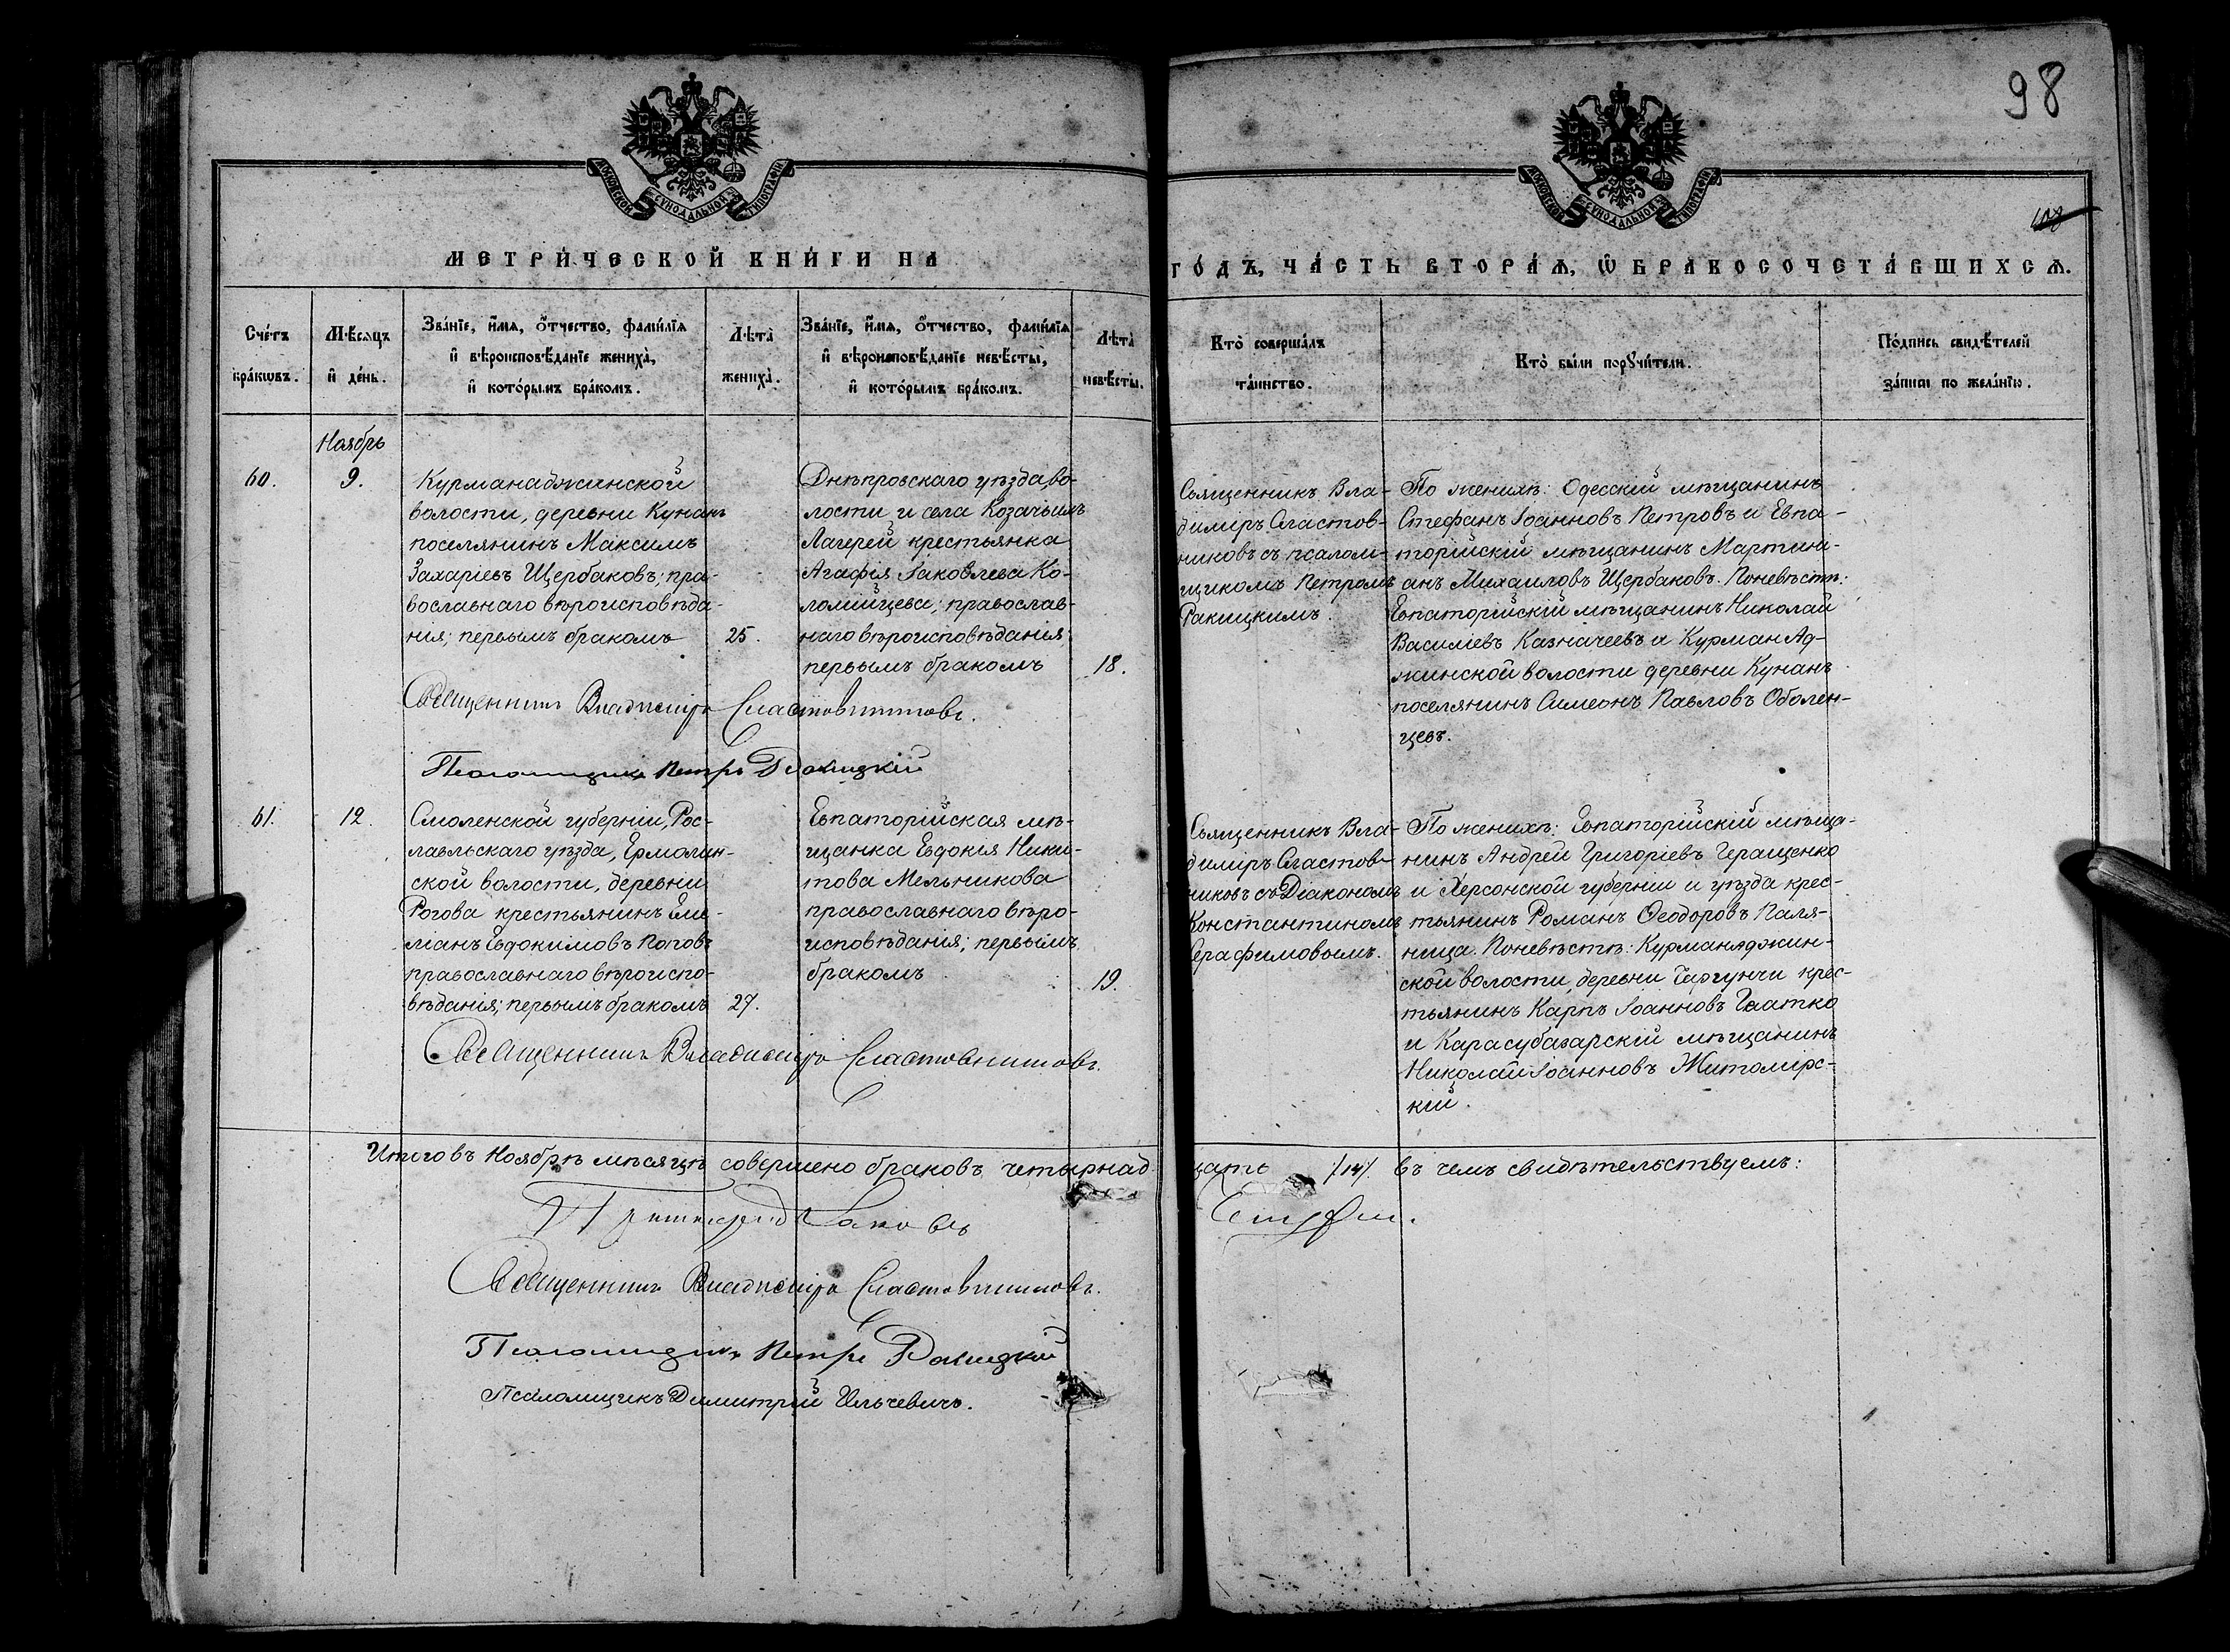 98
108
МОСКОВСКОЙ СѴНОДАЛЬНОЙ ТИПОГРАФІИ
МОСКОВСКОЙ СѴНОДАЛЬНОЙ ТИПОГРАФІИ
МЕТРИ́ЧЕСКОЙ КНИ́ГИ НА
ГО́ДЪ, ЧА́СТЬ ВТОРА́Ѧ, Ѡ БРАКОСОЧЕТА́ВШИХСѦ.
Сче́тъ
бра́кѡвъ.
Мѣ́сѧцъ
и҆ де́нь.
Зва́нїе, и҆́мѧ, ѻ҆́тчество, фами́лїѧ
и҆ вѣроисповѣ́данїе жениха̀,
и҆ кото́рымъ бра́комъ.
Лѣта̀
жениха̀.
Зва́нїе, и҆́мѧ, ѻ҆́тчество, фами́лїѧ
и҆ вѣроисповѣ́данїе невѣ́сты,
и҆ кото́рымъ бра́комъ.
Лѣта̀
невѣ́сты.
Кто̀ соверша́лъ
та́инство.
Кто̀ бы́ли порꙋчи́тели.
По́дпись свидѣ́телей
за́писи по жела́нїю.
Ноябрь
60.
9.
Курманаджинской
волости, деревни Кунанъ
поселянинъ Максимъ
Захаріевъ Щербаковъ; пра-
вославнаго вѣроисповѣда-
нія; первымъ бракомъ
25.
Днѣпровскаго уѣзда, во-
лости и села Козачьихъ
Лагерей крестьянка
Агафія Іаковлева Ко-
ломійцева; православ-
наго вѣроисповѣданія;
первымъ бракомъ
18.
Священникъ Вла-
диміръ Сластов-
никовъ съ псалом-
щикомъ Петромъ
Ракицкимъ.
По женихѣ: Одесскій мѣщанинъ
Стефанъ Іоанновъ Петровъ и Евпа-
торійскій мѣщанинъ Мартини-
анъ Михаиловъ Щербаковъ. По невѣстѣ:
Евпаторійскій мѣщанинъ Николай
Василіевъ Казначеевъ и Курман Ад-
жинской волости деревни Кунанъ
поселянинъ Симеонъ Павловъ Оболен-
цевъ.
Священникъ Владиміръ Сластовниковъ.
Псаломщикъ Петръ Ракицкій
61.
12.
Смоленской губерніи, Рос-
лавльскаго уѣзда, Ермолин-
ской волости, деревни
Рогова крестьянинъ Еми-
ліанъ Евдокимовъ Поповъ
православнаго вѣроиспо-
вѣданія; первымъ бракомъ
27.
Евпаторійская мѣ-
щанка Евдокія Ники-
това Мельникова
православнаго вѣро-
исповѣданія; первымъ
бракомъ
19.
Священникъ Вла-
диміръ Сластов-
никовъ съ Діакономъ
Константиномъ
Серафимовымъ.
По женихѣ: Евпаторійскій мѣща-
нинъ Андрей Григоріевъ Геращенко
и Херсонской губерніи и уѣзда крес-
тьянинъ Романъ Ѳеодоровъ Паля-
ница. По невѣстѣ: Курманаджин-
ской волости, деревни Чаргунчи крес-
тьянинъ Карпъ Іоанновъ Глатко
и Карасубазарскій мѣщанинъ
Николай Іоанновъ Житомірс-
кій.
Священникъ Владиміръ Сластовниковъ.
Итого въ Ноябрѣ мѣсяцѣ совершено браковъ четырнад-
цать /14/. въ чемъ свидѣтельствуемъ:
Священникъ Владиміръ Сластовниковъ.
Псаломщикъ Петръ Ракицкій
Псаломщикъ Димитрій Ильчевичъ.